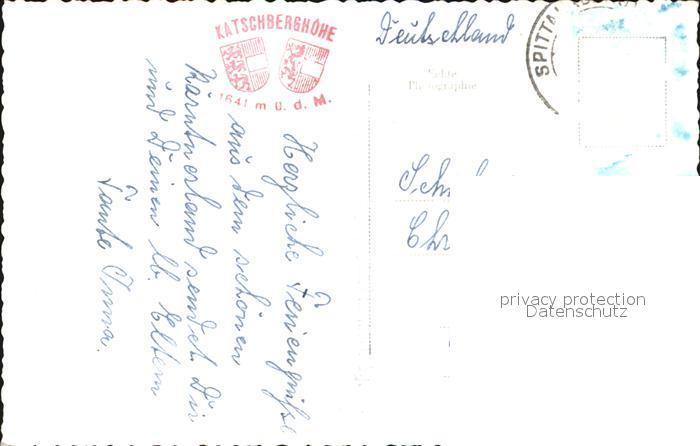 KATSCHBERGHÖHE
1641 m ü. d. M.
Deutschland
SPITTA
Echte
Photographie
Herzliche Feriengrüße
aus dem schönen
Kärntnerland sendet Dir
und Deinen lb. Eltern
Tante Irma.
Sch
Chr
privacy protection
Datenschutz